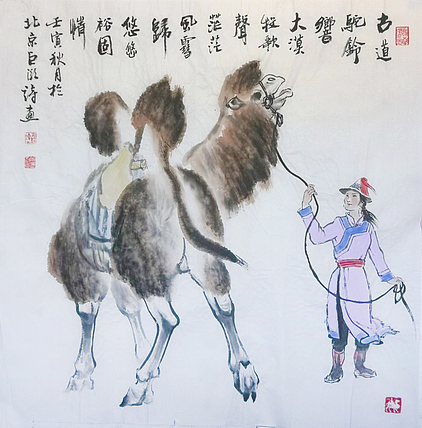 古道
駝鈴
響
大漠
牧歌
聲
茫茫
風雪
歸
悠悠
裕固
情
壬寅秋月於
北京巨 詩畫